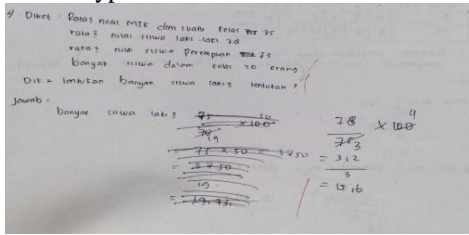 Diket : Rata2 nilai MTK dlm suatu kelas 75
rata2 nilai siswa laki-laki 78
rata2 nilai siswa Perempuan 73
banyak siswa dalam kelas 50 orang
Dit = tentukan banyak siswa laki2 tentukan ?
Jawab :
banyak siswa laki2
78 / 75 3 × 100 4
75 × 50 = 3750
= 3750
19
= 312 / 3
= 15,6